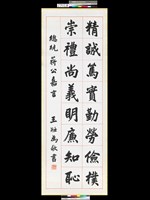 精誠篤實勤勞儉樸
崇禮尚義明廉知恥
總統 蔣公嘉言 王
敬書